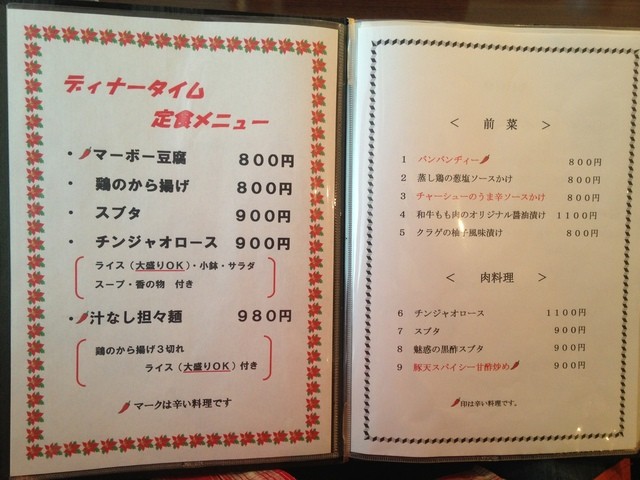 ディナータイム
定食メニュー
・マーボー豆腐 800円
・鶏のから揚げ 800円
・スブタ 900円
・チンジャオロース 900円
ライス（大盛りOK）・小鉢・サラダ
スープ・香の物 付き
・汁なし担々麺 980円
鶏のから揚げ３切れ
ライス（大盛りOK）付き
マークは辛い料理です
＜ 前菜 ＞
1 バンバンヂィー 800円
2 蒸し鶏の葱塩ソースかけ 800円
3 チャーシューのうま辛ソースかけ 800円
4 和牛もも肉のオリジナル醤油漬け 1100円
5 クラゲの柚子風味漬け 800円
＜ 肉料理 ＞
6 チンジャオロース 1100円
7 スブタ 900円
8 魅惑の黒酢スブタ 900円
9 豚天スパイシー甘酢炒め 900円
印は辛い料理です。